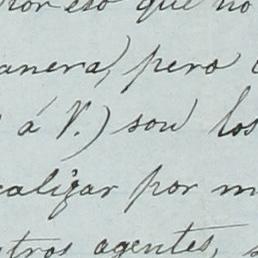 por eso que no
anera, pero
á V.) son los
ealizar por m
tros agentes,